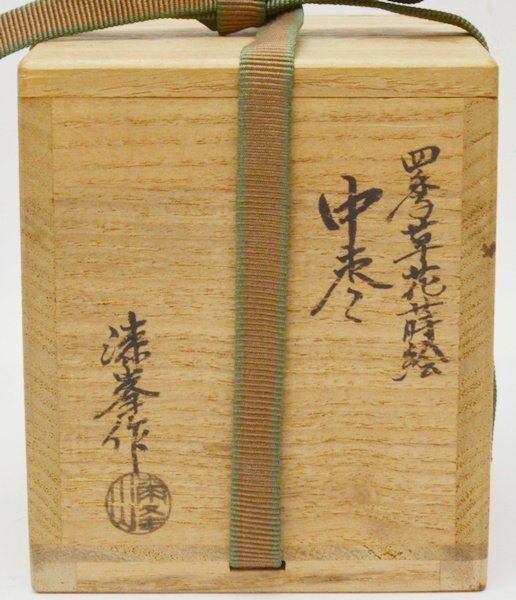 四季草花蒔絵
中棗
漆峯作